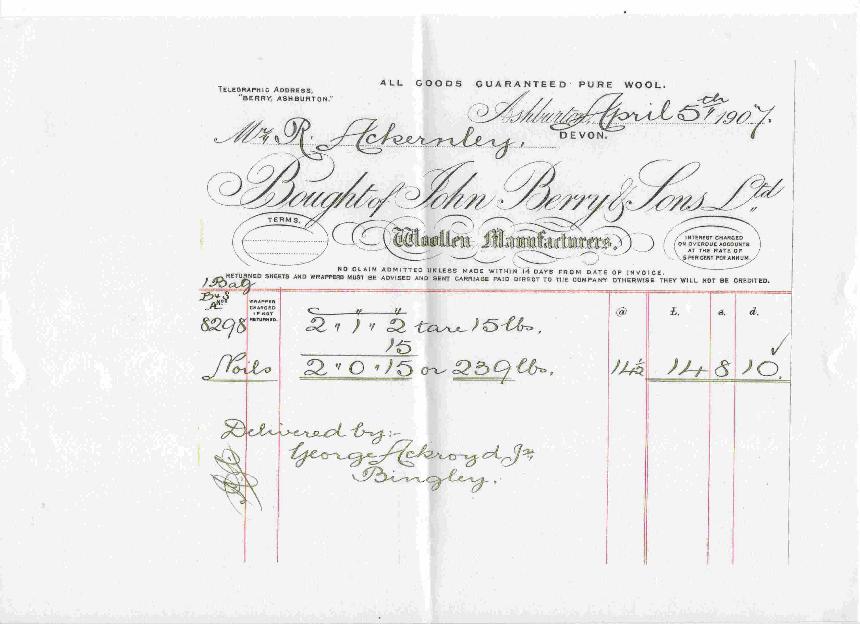 ALL GOODS GUARANTEED PURE WOOL.
TELEGRAPHIC ADDRESS,
"BERRY, ASHBURTON."
Ashburton, April 5th 1907.
DEVON.
Mr R. Ackernley.
Bought of John Berry & Sons Ltd
TERMS.
Woollen Manufacturers.
INTEREST CHARGED
ON OVERDUE ACCOUNTS
AT THE RATE OF
5 PER CENT PER ANNUM.
NO CLAIM ADMITTED UNLESS MADE WITHIN 14 DAYS FROM DATE OF INVOICE.
RETURNED SHEETS AND WRAPPERS MUST BE ADVISED AND SENT CARRIAGE PAID DIRECT TO THE COMPANY OTHERWISE THEY WILL NOT BE CREDITED.
1 Bag
B & S
WRAPPER
CHARGED
IF NOT
RETURNED.
@ £. s. d.
8298 2 " 1 " 2 tare 15 lbs.
15
Noils 2 " 0 " 15 or 239 lbs. 14½ 14 8 10.
Delivered by:-
George Ackroyd Jr,
Bingley.